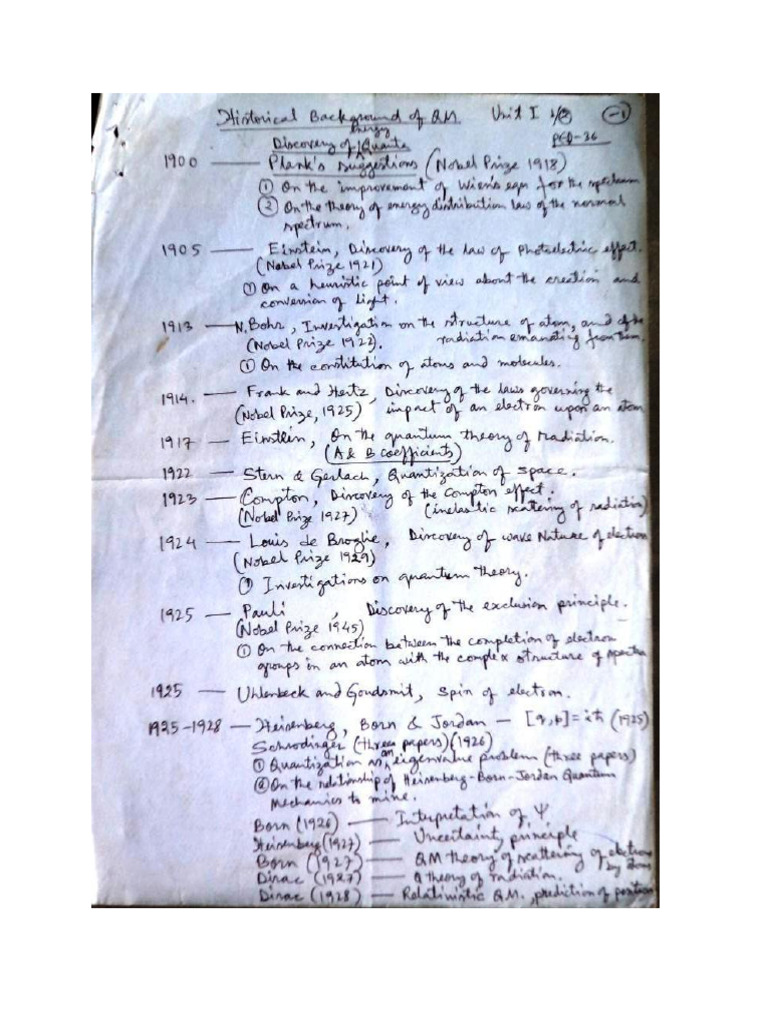 Historical Background of QM Unit I (-1)
Energy
Discovery of Quanta
1900 — Plank's suggestions (Nobel Prize 1918)
① On the improvement of Wien's eqn for the spectrum
② On the theory of energy distribution law of the normal
spectrum.
1905 — Einstein, Discovery of the law of Photoelectric effect.
(Nobel Prize 1921)
① On a heuristic point of view about the creation and
conversion of light.
1913 — N. Bohr, Investigation on the structure of atom, and of the
(Nobel Prize 1922). radiation emanating from them.
① On the constitution of atoms and molecules.
1914. — Frank and Hertz, Discovery of the laws governing the
(Nobel Prize, 1925) impact of an electron upon an atom
1917 — Einstein, On the quantum theory of radiation.
(A & B coefficients)
1922 — Stern & Gerlach, Quantization of space.
1923 — Compton, Discovery of the Compton effect.
(Nobel Prize 1927) (inelastic scattering of radiation)
1924 — Louis de Broglie, Discovery of wave Nature of electron
(Nobel Prize 1929)
① Investigations on quantum theory.
1925 — Pauli, Discovery of the exclusion principle.
(Nobel Prize 1945)
① On the connection between the completion of electron
groups in an atom with the complex structure of spectra
1925 — Uhlenbeck and Goudsmit, Spin of electron.
1925-1928 — Heisenberg, Born & Jordan — [q,p]=iħ (1925)
Schrodinger (three papers) (1926)
① Quantization as an eigenvalue problem (three papers)
② On the relationship of Heisenberg-Born-Jordan Quantum
Mechanics to mine.
Born (1926) — Interpretation of ψ
Heisenberg (1927) — Uncertainty principle
Born (1927) — QM theory of scattering of electrons
by atoms
Dirac (1927) — Q theory of radiation.
Dirac (1928) — Relativistic QM., prediction of positron